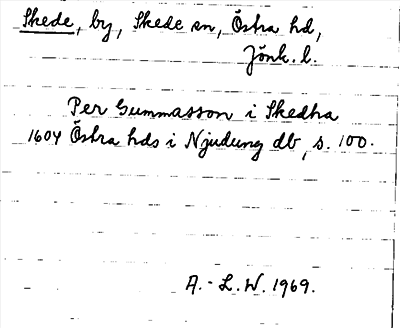 Skede, by, Skede sn, Östra hd,
Jönk. l.
Per Gummasson i Skedha
1604 Östra hds i Njudung db, s. 100.
A.-L.W. 1969.